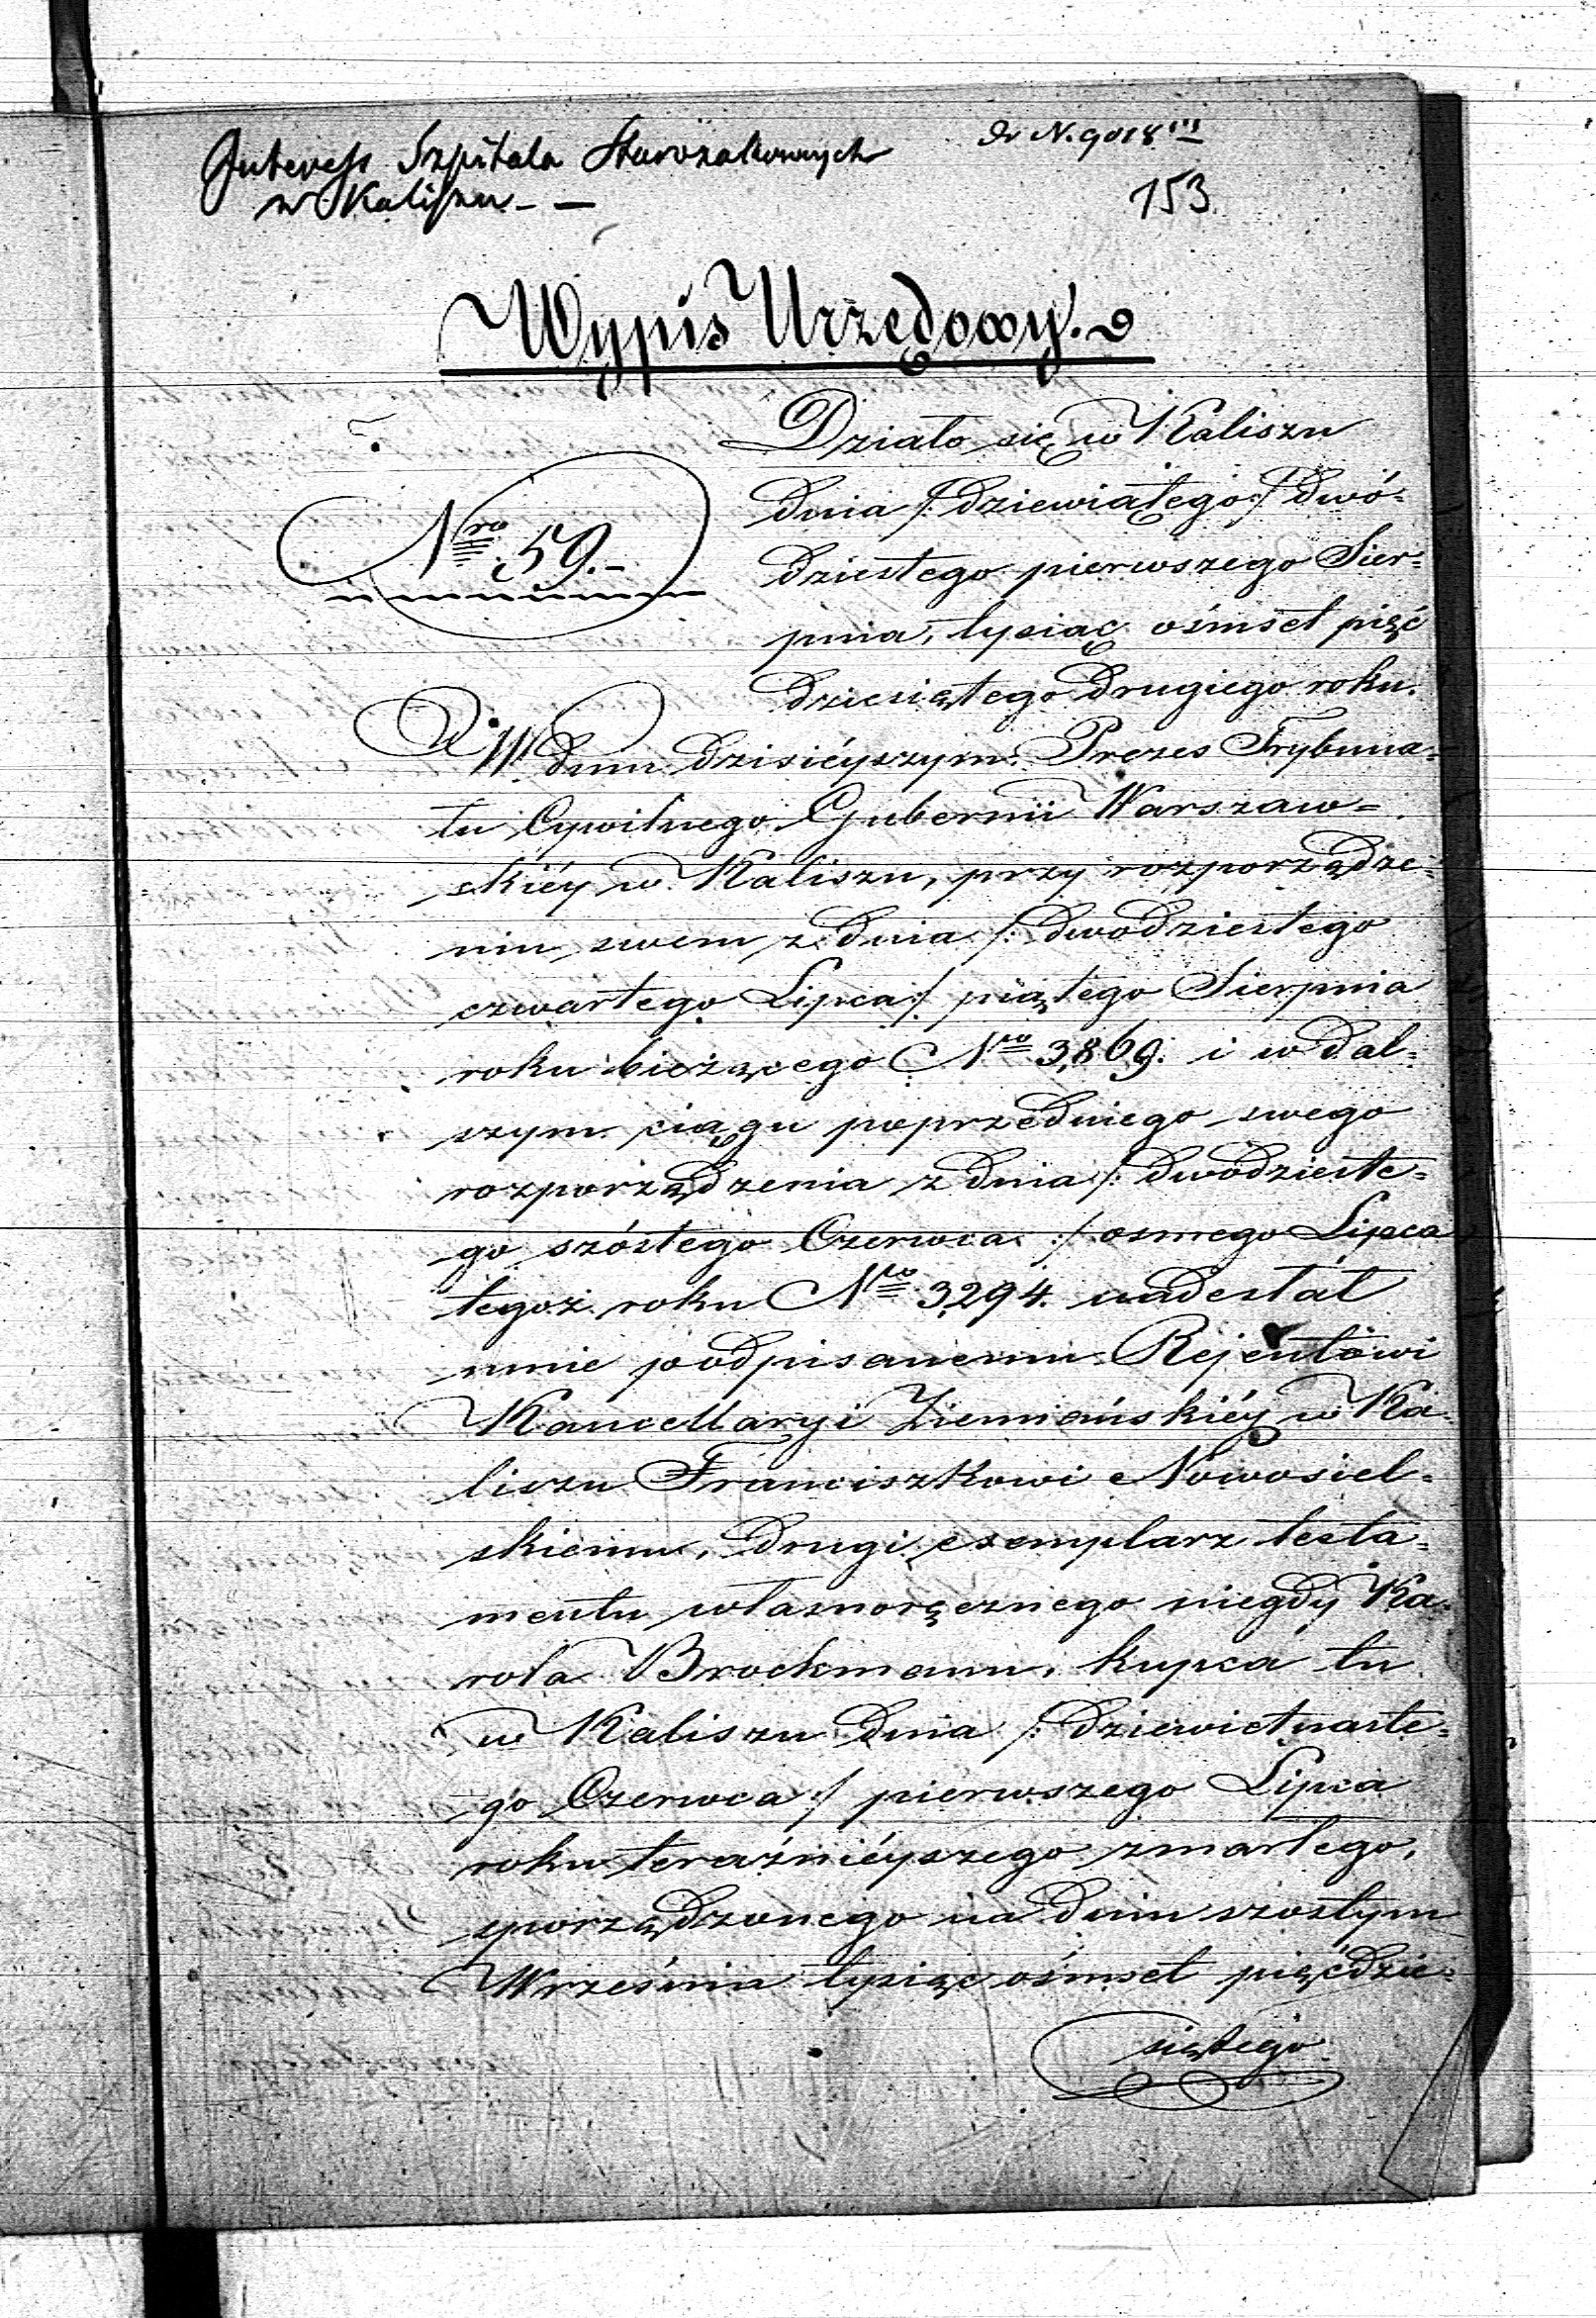 Interess Szpitala Starozakonnych
w Kaliszu - -
N. 9018 III
153
Wypis Urzędowy.
Działo się w Kaliszu
Nro 59.-
dnia /: dziewiątego :/ dwó=
dziestego pierwszego Sier=
pnia, tysiąc ośmset pięć
dziesiątego drugiego roku.
W dniu dzisiéyszym Prezes Trybuna=
łu Cywilnego Gubernii Warszaw=
skiéy w Kaliszu, przy rozporządze=
niu swem z dnia /: dwódziestego
czwartego Lipca :/ piątego Sierpnia
roku bieżącego Nro 3,869. i w dal=
szym ciągu poprzedniego swego
rozporządzenia z dnia /: dwódzieste=
go szóstego Czerwca :/ osmego Lipca
tegoż roku Nro 3,294. nadesłał
mnie podpisanemu Rejentowi
Kancellaryi Ziemiańskiéy w Ka=
liszu Franciszkowi Nowosiel=
skiemu, drugi exemplarz testa=
mentu własnoręcznego niegdy Ka=
rola Brockmann, kupca tu
w Kaliszu dnia /: dziewiętnaste=
go Czerwca :/ pierwszego Lipca
roku teraźniéyszego zmarłego,
sporządzonego na dniu szostym
Września tysiąc ośmset pięćdzie=
siątego